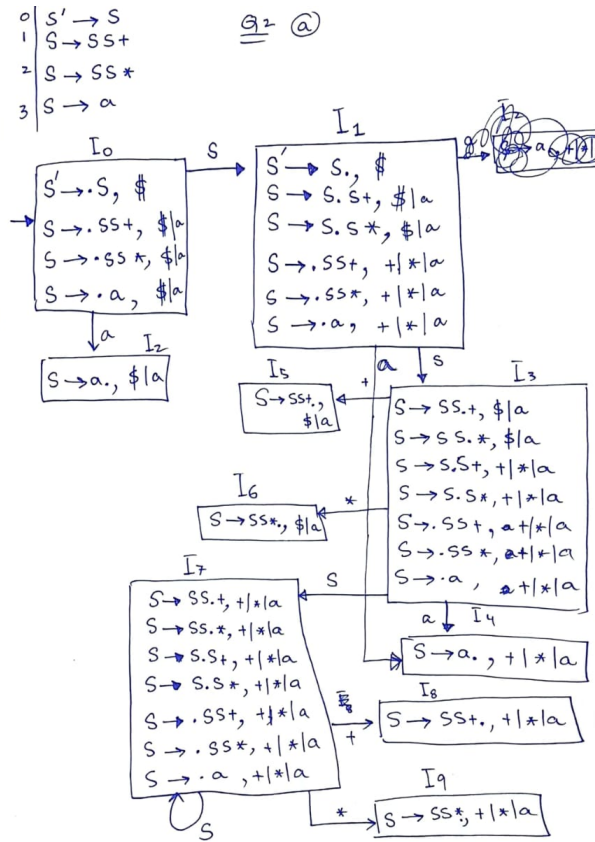 Q2 (a)
0 | S' → S
1 | S → SS+
2 | S → SS*
3 | S → a
I0
S' → .S, $
S → .SS+, $|a
S → .SS*, $|a
S → .a, $|a
S
I1
S' → S., $
S → S.S+, $|a
S → S.S*, $|a
S → .SS+, +|*|a
S → .SS*, +|*|a
S → .a, +|*|a
a, +|*|
a
I2
S → a., $|a
a
S
I5
S → SS+.,
$|a
+
I3
S → SS.+, $|a
S → SS.*, $|a
S → S.S+, +|*|a
S → S.S*, +|*|a
S → .SS+, +|*|a
S → .SS*, +|*|a
S → .a, +|*|a
I6
S → SS*., $|a
*
S
a
I4
S → a., +|*|a
I7
S → SS.+, +|*|a
S → SS.*, +|*|a
S → S.S+, +|*|a
S → S.S*, +|*|a
S → .SS+, +|*|a
S → .SS*, +|*|a
S → .a, +|*|a
S
+
I8
S → SS+., +|*|a
*
I9
S → SS*., +|*|a